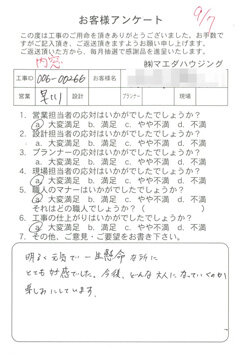 お客様アンケート
9/7
この度は工事のご用命を頂きありがとうございました。お手数で
すがご記入頂き、ご返送頂きますようお願い申し上げます。
ご返送頂いた方から、毎月抽選で感謝品を進呈いたします!
内窓
㈱マエダハウジング
工事ID 006-00266 お客様名
営業 設計 プランナー 現場
1. 営業担当者の応対はいかがでしたでしょうか?
a. 大変満足 b. 満足 c. やや不満 d. 不満
2. 設計担当者の応対はいかがでしたでしょうか?
a. 大変満足 b. 満足 c. やや不満 d. 不満
3. プランナーの応対はいかがでしたでしょうか?
a. 大変満足 b. 満足 c. やや不満 d. 不満
4. 現場担当者の応対はいかがでしたでしょうか?
a. 大変満足 b. 満足 c. やや不満 d. 不満
5. 職人のマナーはいかがでしたでしょうか?
a. 大変満足 b. 満足 c. やや不満 d. 不満
それはどの職人でしょうか? ( )
6. 工事の仕上がりはいかがでしたでしょうか?
a. 大変満足 b. 満足 c. やや不満 d. 不満
7. その他、ご意見・ご要望をお書き下さい。
明るく元気で一生懸命な所に
とても好感でした。今後、どんな大人になっていくのか
楽しみにしています。